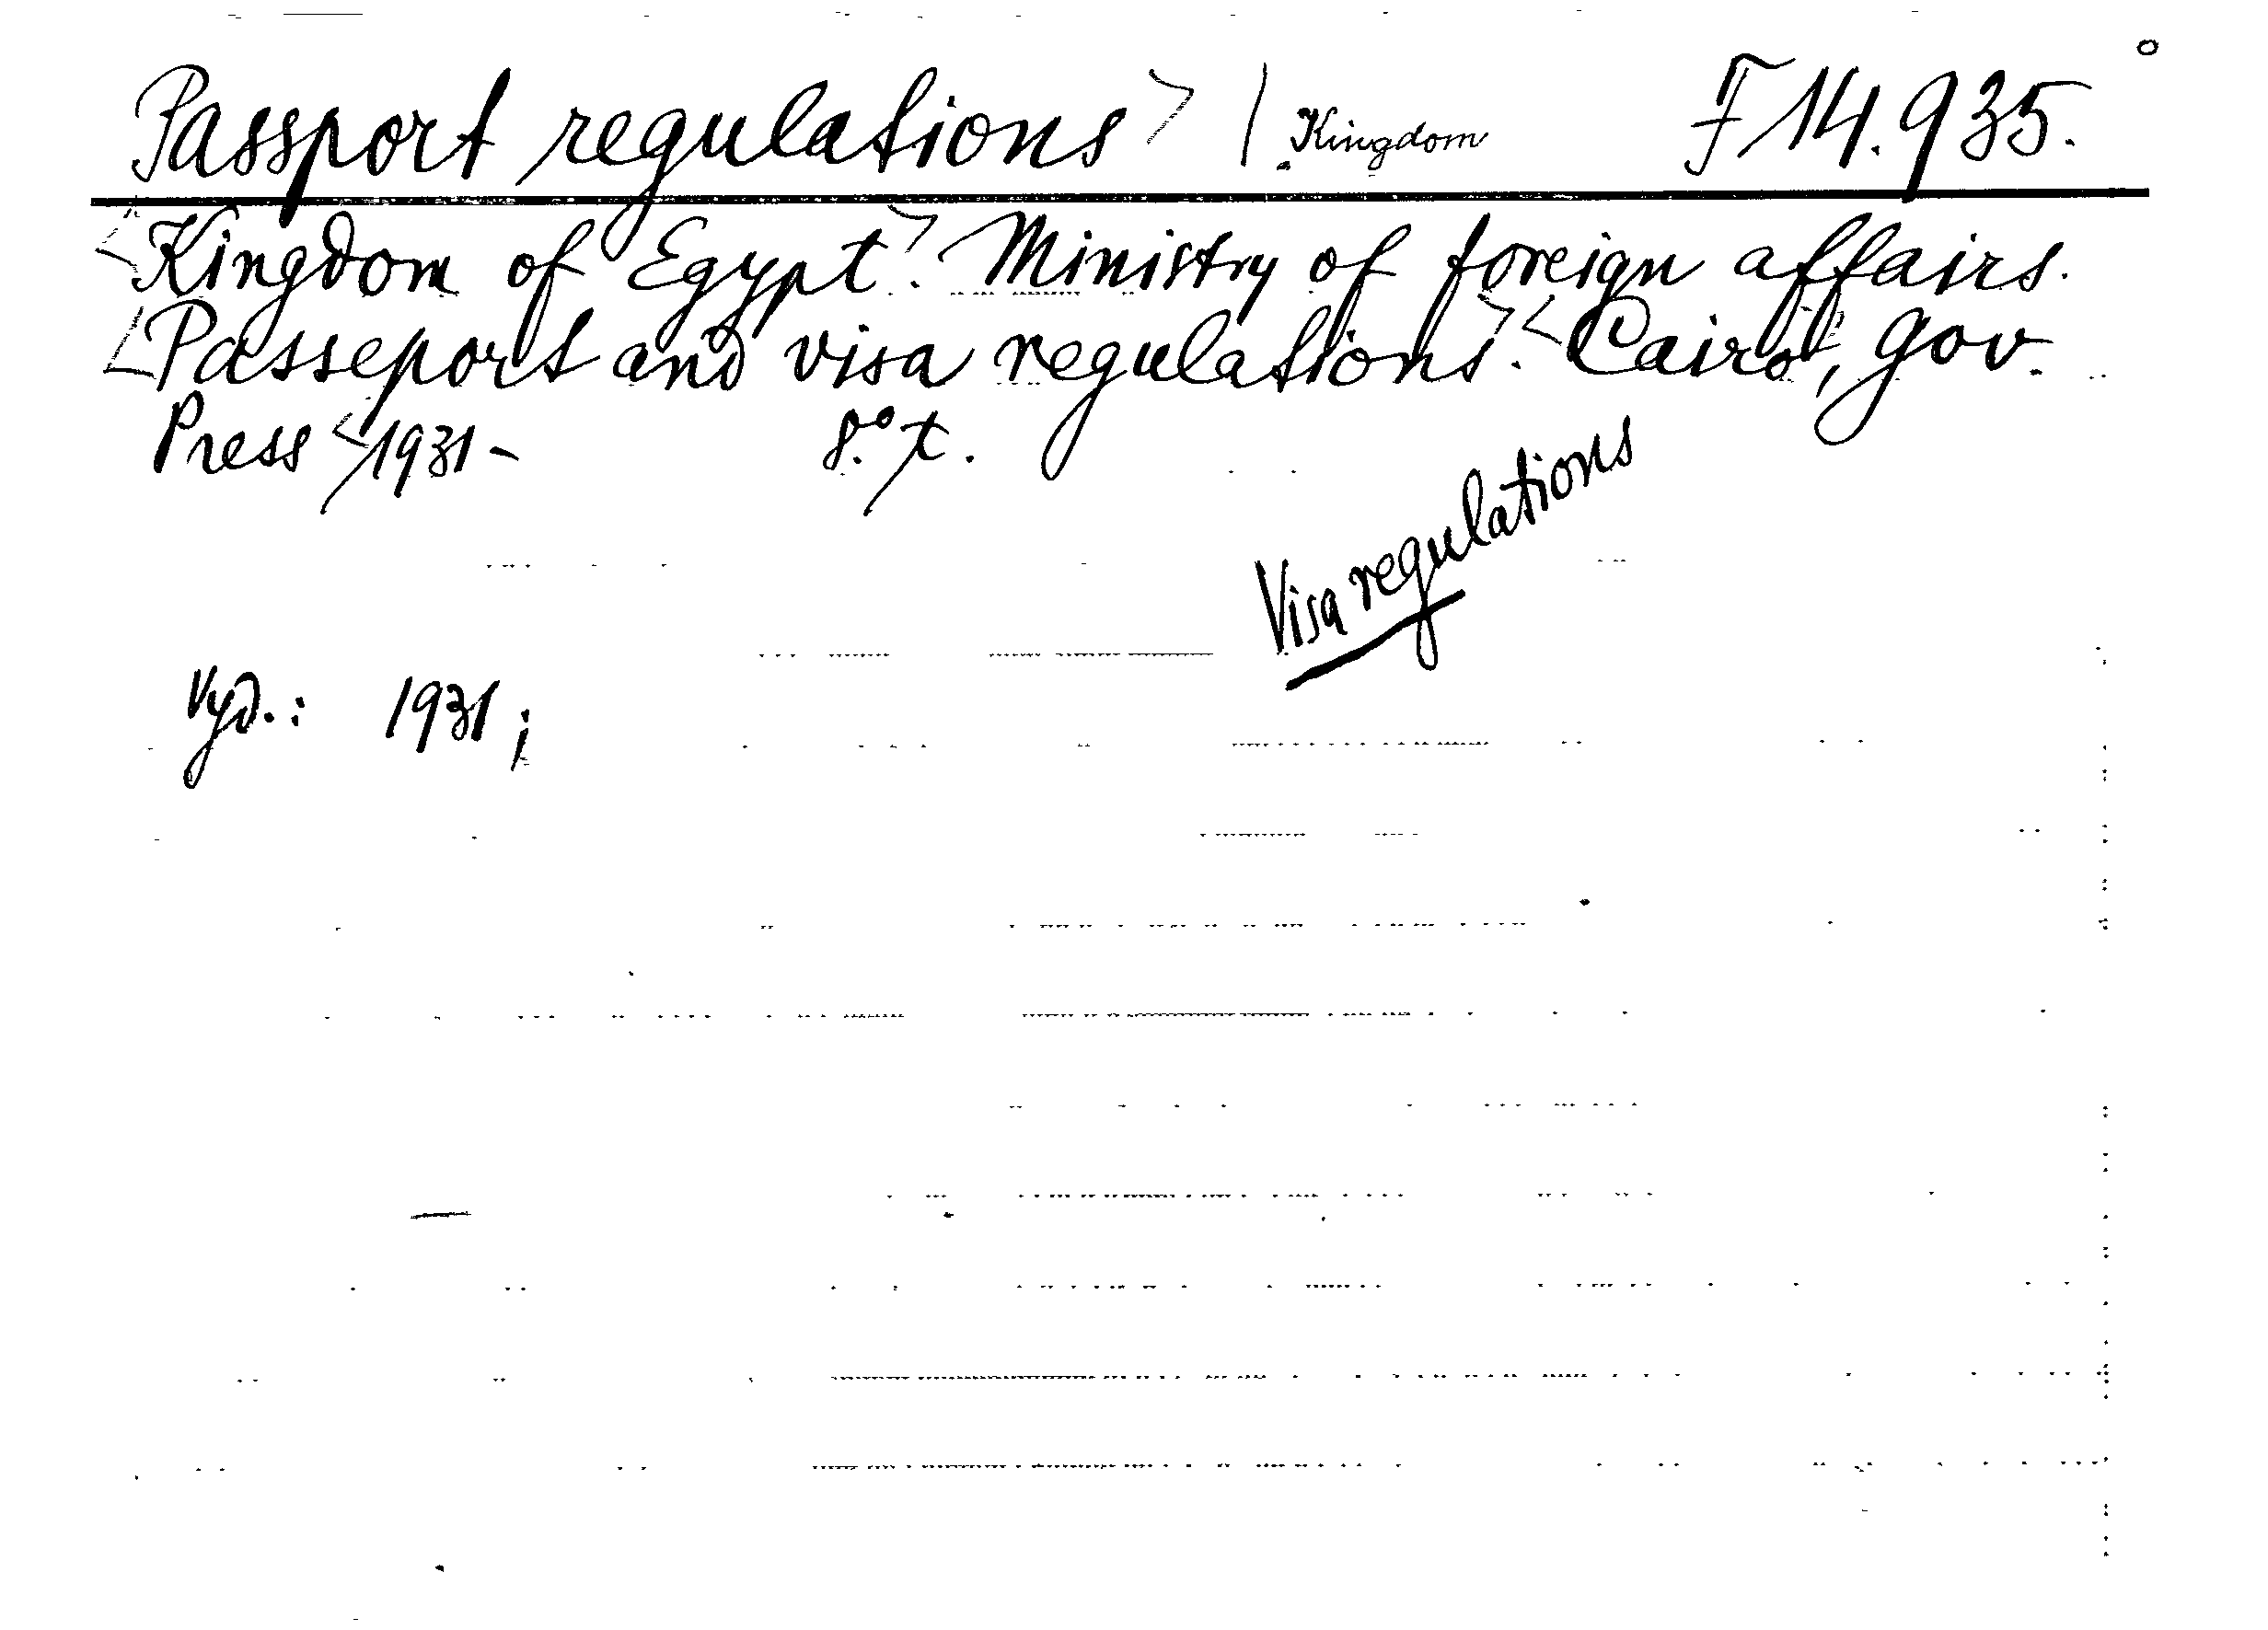 Passport regulations > | Kingdom F 14.935.
<Kingdom of Egypt>. Ministry of foreign affairs.
<Passeport and visa regulations>. <Cairo, gov.
Press <1931 - 8.° t.
Visa regulations
Vyd.: 1931;